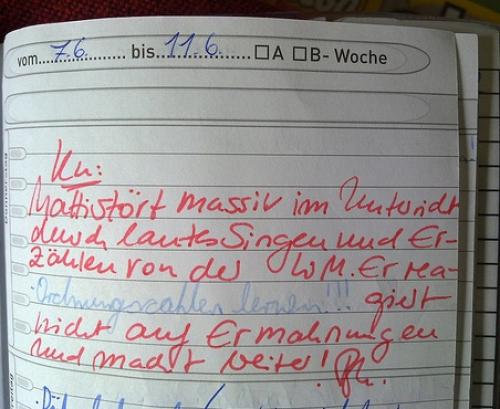 vom 7.6. bis 11.6. □A □B-Woche
Ku:
Matti stört massiv im Unterricht
durch lautes Singen und Er-
zählen von der WM. Er rea-
Ordnungszahlen lernen!!! giert
nicht auf Ermahnungen
und macht weiter!